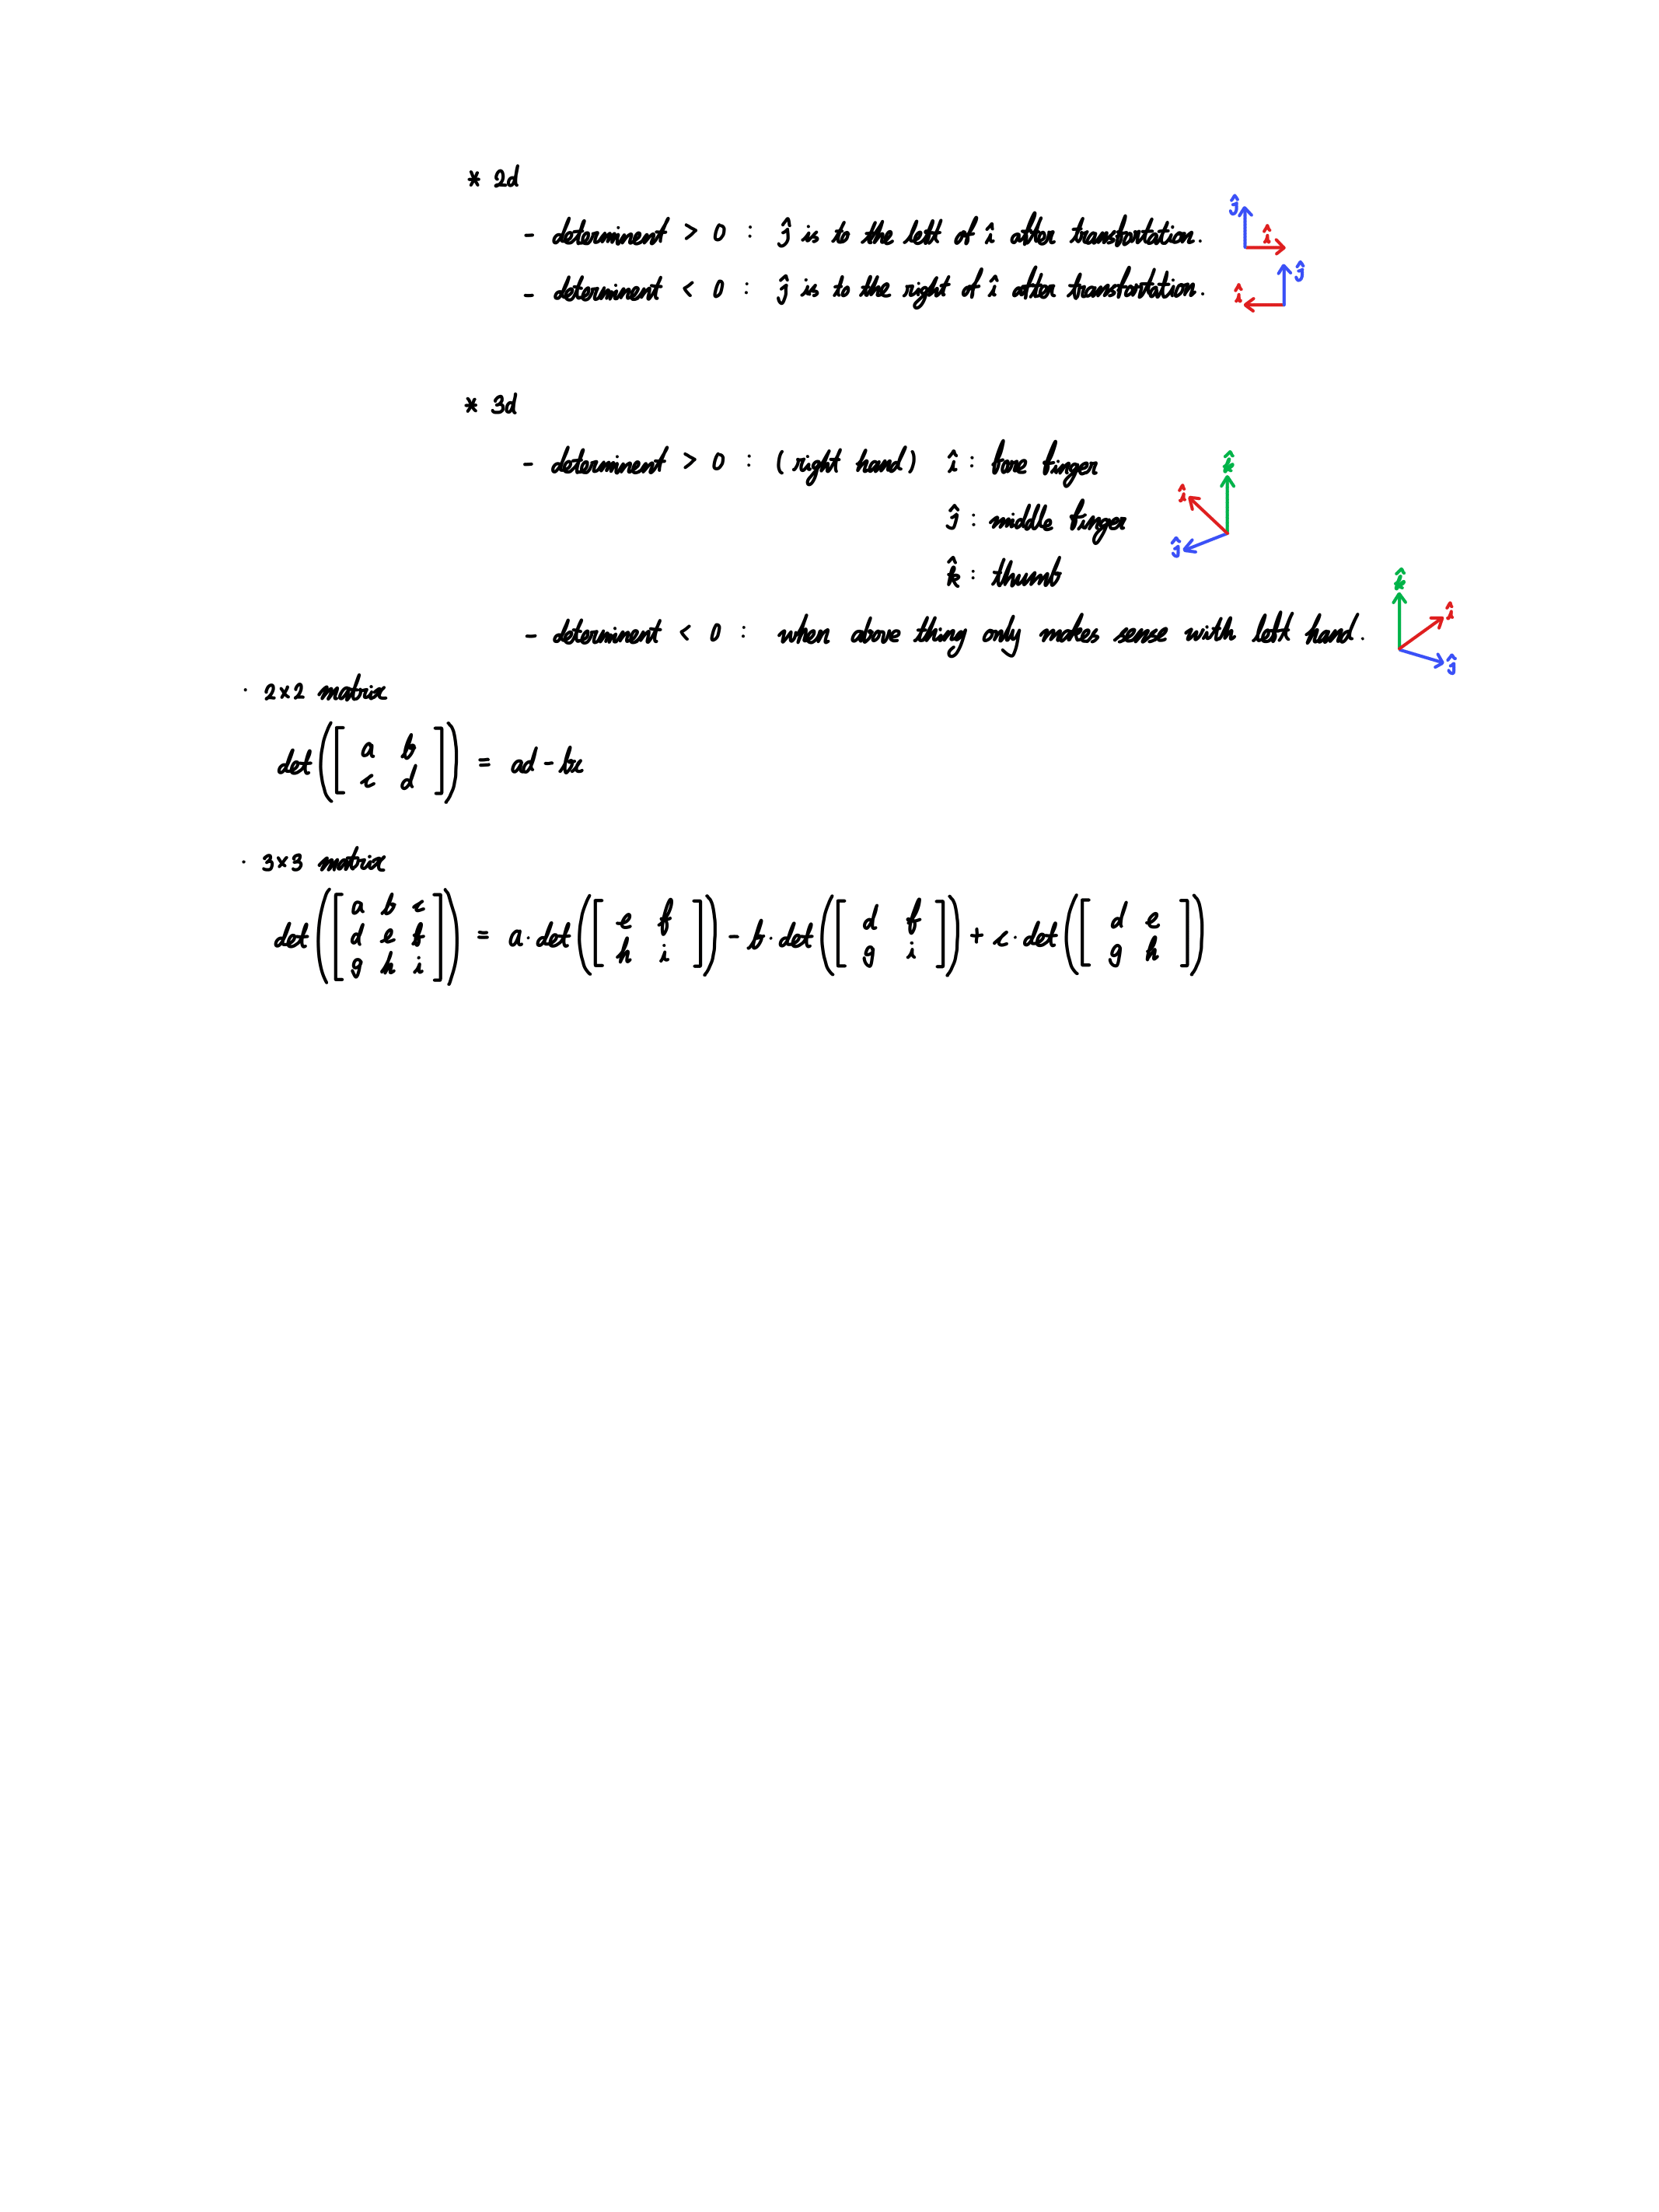 * 2d
- determinent > 0 : ĵ is to the left of î after transfortation.
ĵ
î
- determinent < 0 : ĵ is to the right of î after transfortation.
î
ĵ
* 3d
- determinent > 0 : (right hand) î : fore finger
ĵ : middle finger
k̂ : thumb
k̂
î
ĵ
- determinent < 0 : when above thing only makes sense with left hand.
k̂
î
ĵ
· 2×2 matrix
det([ a b
c d ]) = ad - bc
· 3×3 matrix
det([ a b c
d e f
g h i ]) = a · det([ e f
h i ]) - b · det([ d f
g i ]) + c · det([ d e
g h ])